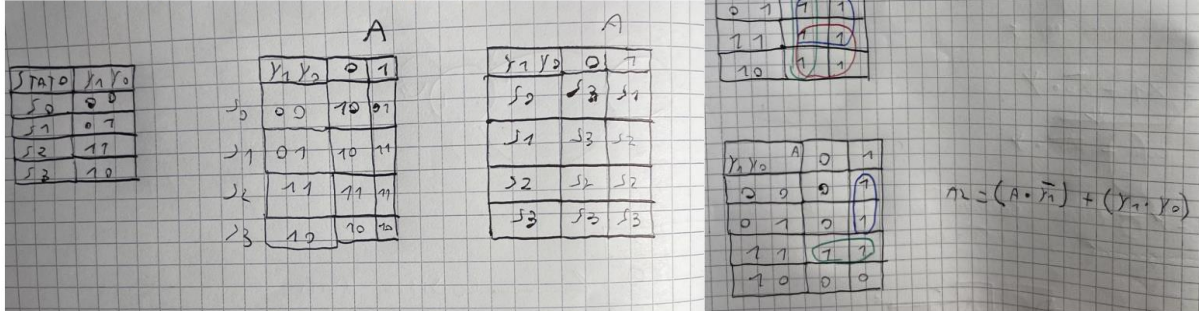 STATO Y1 Y0
S0 0 0
S1 0 1
S2 1 1
S3 1 0
A
Y1 Y0 0 1
S0 0 0 10 01
S1 01 10 11
S2 11 11 11
S3 10 10 10
A
Y1 Y0 0 1
S0 S3 S1
S1 S3 S2
S2 S2 S2
S3 S3 S3
0 1 1 1
1 1 1 1
1 0 1 1
Y1 Y0 A 0 1
0 0 0 1
0 1 0 1
1 1 1 1
1 0 0 0
= (A · Y̅1) + (Y1 · Y0)